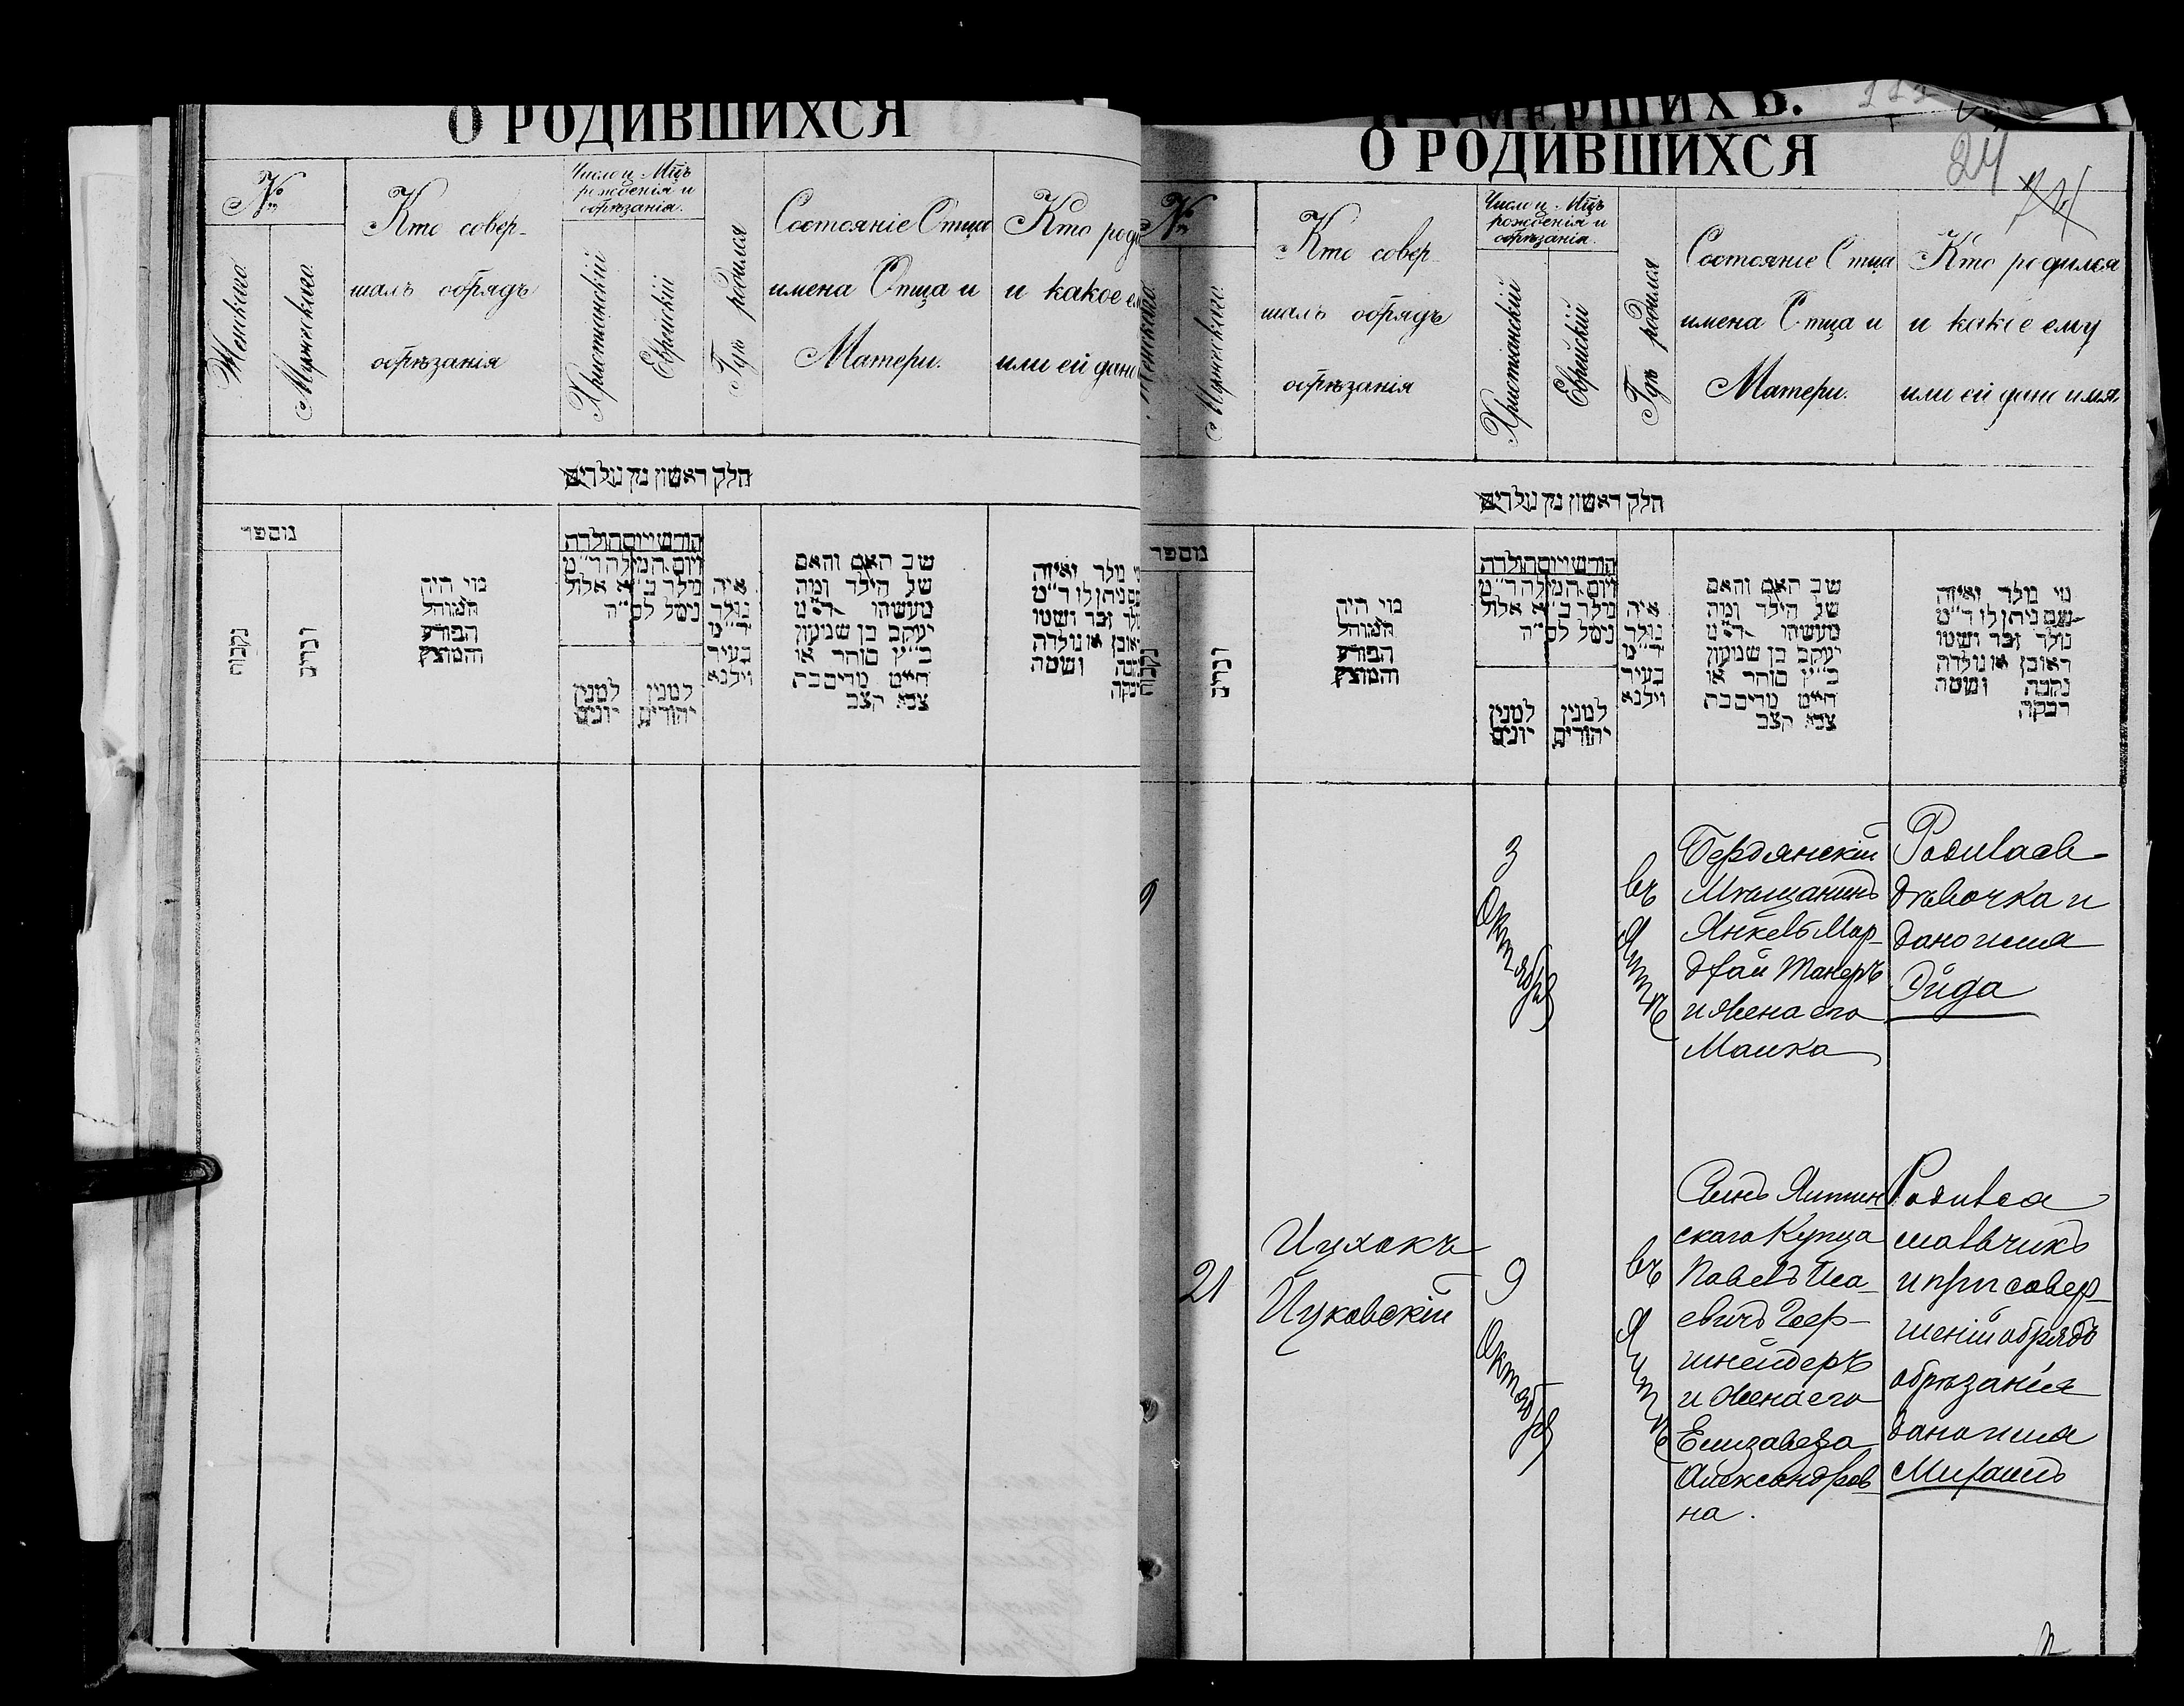 О РОДИВШИХСЯ
№
Женскаго.
Мужескаго.
Кто совер-
шалъ обрядъ
обрѣзанія
Число и Мцъ
рожденія и
обрѣзанія.
Христіанскій
Еврейскій
Гдѣ родился
Состояніе Отца
имена Отца и
Матери.
Кто роди
и какое е
или ей дано
חלק ראשון מן נולדים
מספר
נקבות
זכרים
מי היה
המוהל
הפורע
והמוצץ
חודש ויום הולדה
ויום המילה ד״מ
נולד ב״א אלול
נימל לס״ה
למנין
יונים
למנין
יהודים
איה
נולד
ד״מ
בעיר
וילנא
שב האם והאם
של הילד ומה
מעשהו ד״מ
יעקב בן שמעון
כ״ץ סוחר או
חייט מרים בת
צבי קצב
О РОДИВШИХСЯ
24
№
Мужескаго.
Кто совер-
шалъ обрядъ
обрѣзанія
Число и Мцъ
рожденія и
обрѣзанія.
Христіанскій
Еврейскій
Гдѣ родился
Состояніе Отца
имена Отца и
Матери.
Кто родился
и какое ему
или ей дано имя
חלק ראשון מן נולדים
מספר
זכרים
מי היה
המוהל
הפורע
והמוצץ
חודש ויום הולדה
ויום המילה ד״מ
נולד ב״א אלול
נימל לס״ה
למנין
יונים
למנין
יהודים
איה
נולד
ד״מ
בעיר
וילנא
שב האם והאם
של הילד ומה
מעשהו ד״מ
יעקב בן שמעון
כ״ץ סוחר או
חייט מרים בת
צבי קצב
מי נולד ואיזה
שם ניתן לו ד״מ
נולד זכר ושמו
ראובן או נולדה
נקבה ושמה
רבקה
3
Октября
въ
Ялтѣ
Бердянскій
Мѣщанинъ
Янкель Мор-
дхай Танеръ
и жена его
Малка
Родилась
дѣвочка и
дано имя
Эйда
21
Ицхокъ
Цуковскій
9
Октября
въ
Ялтѣ
Сынъ Ялтин
скаго Купца
Павелъ Иса-
евичъ Гер-
шнейдеръ
и жена его
Елизавета
Александров
на.
Родился
мальчикъ
и при совер-
шеніи обряда
обрѣзанія
дано имя
Михаилъ